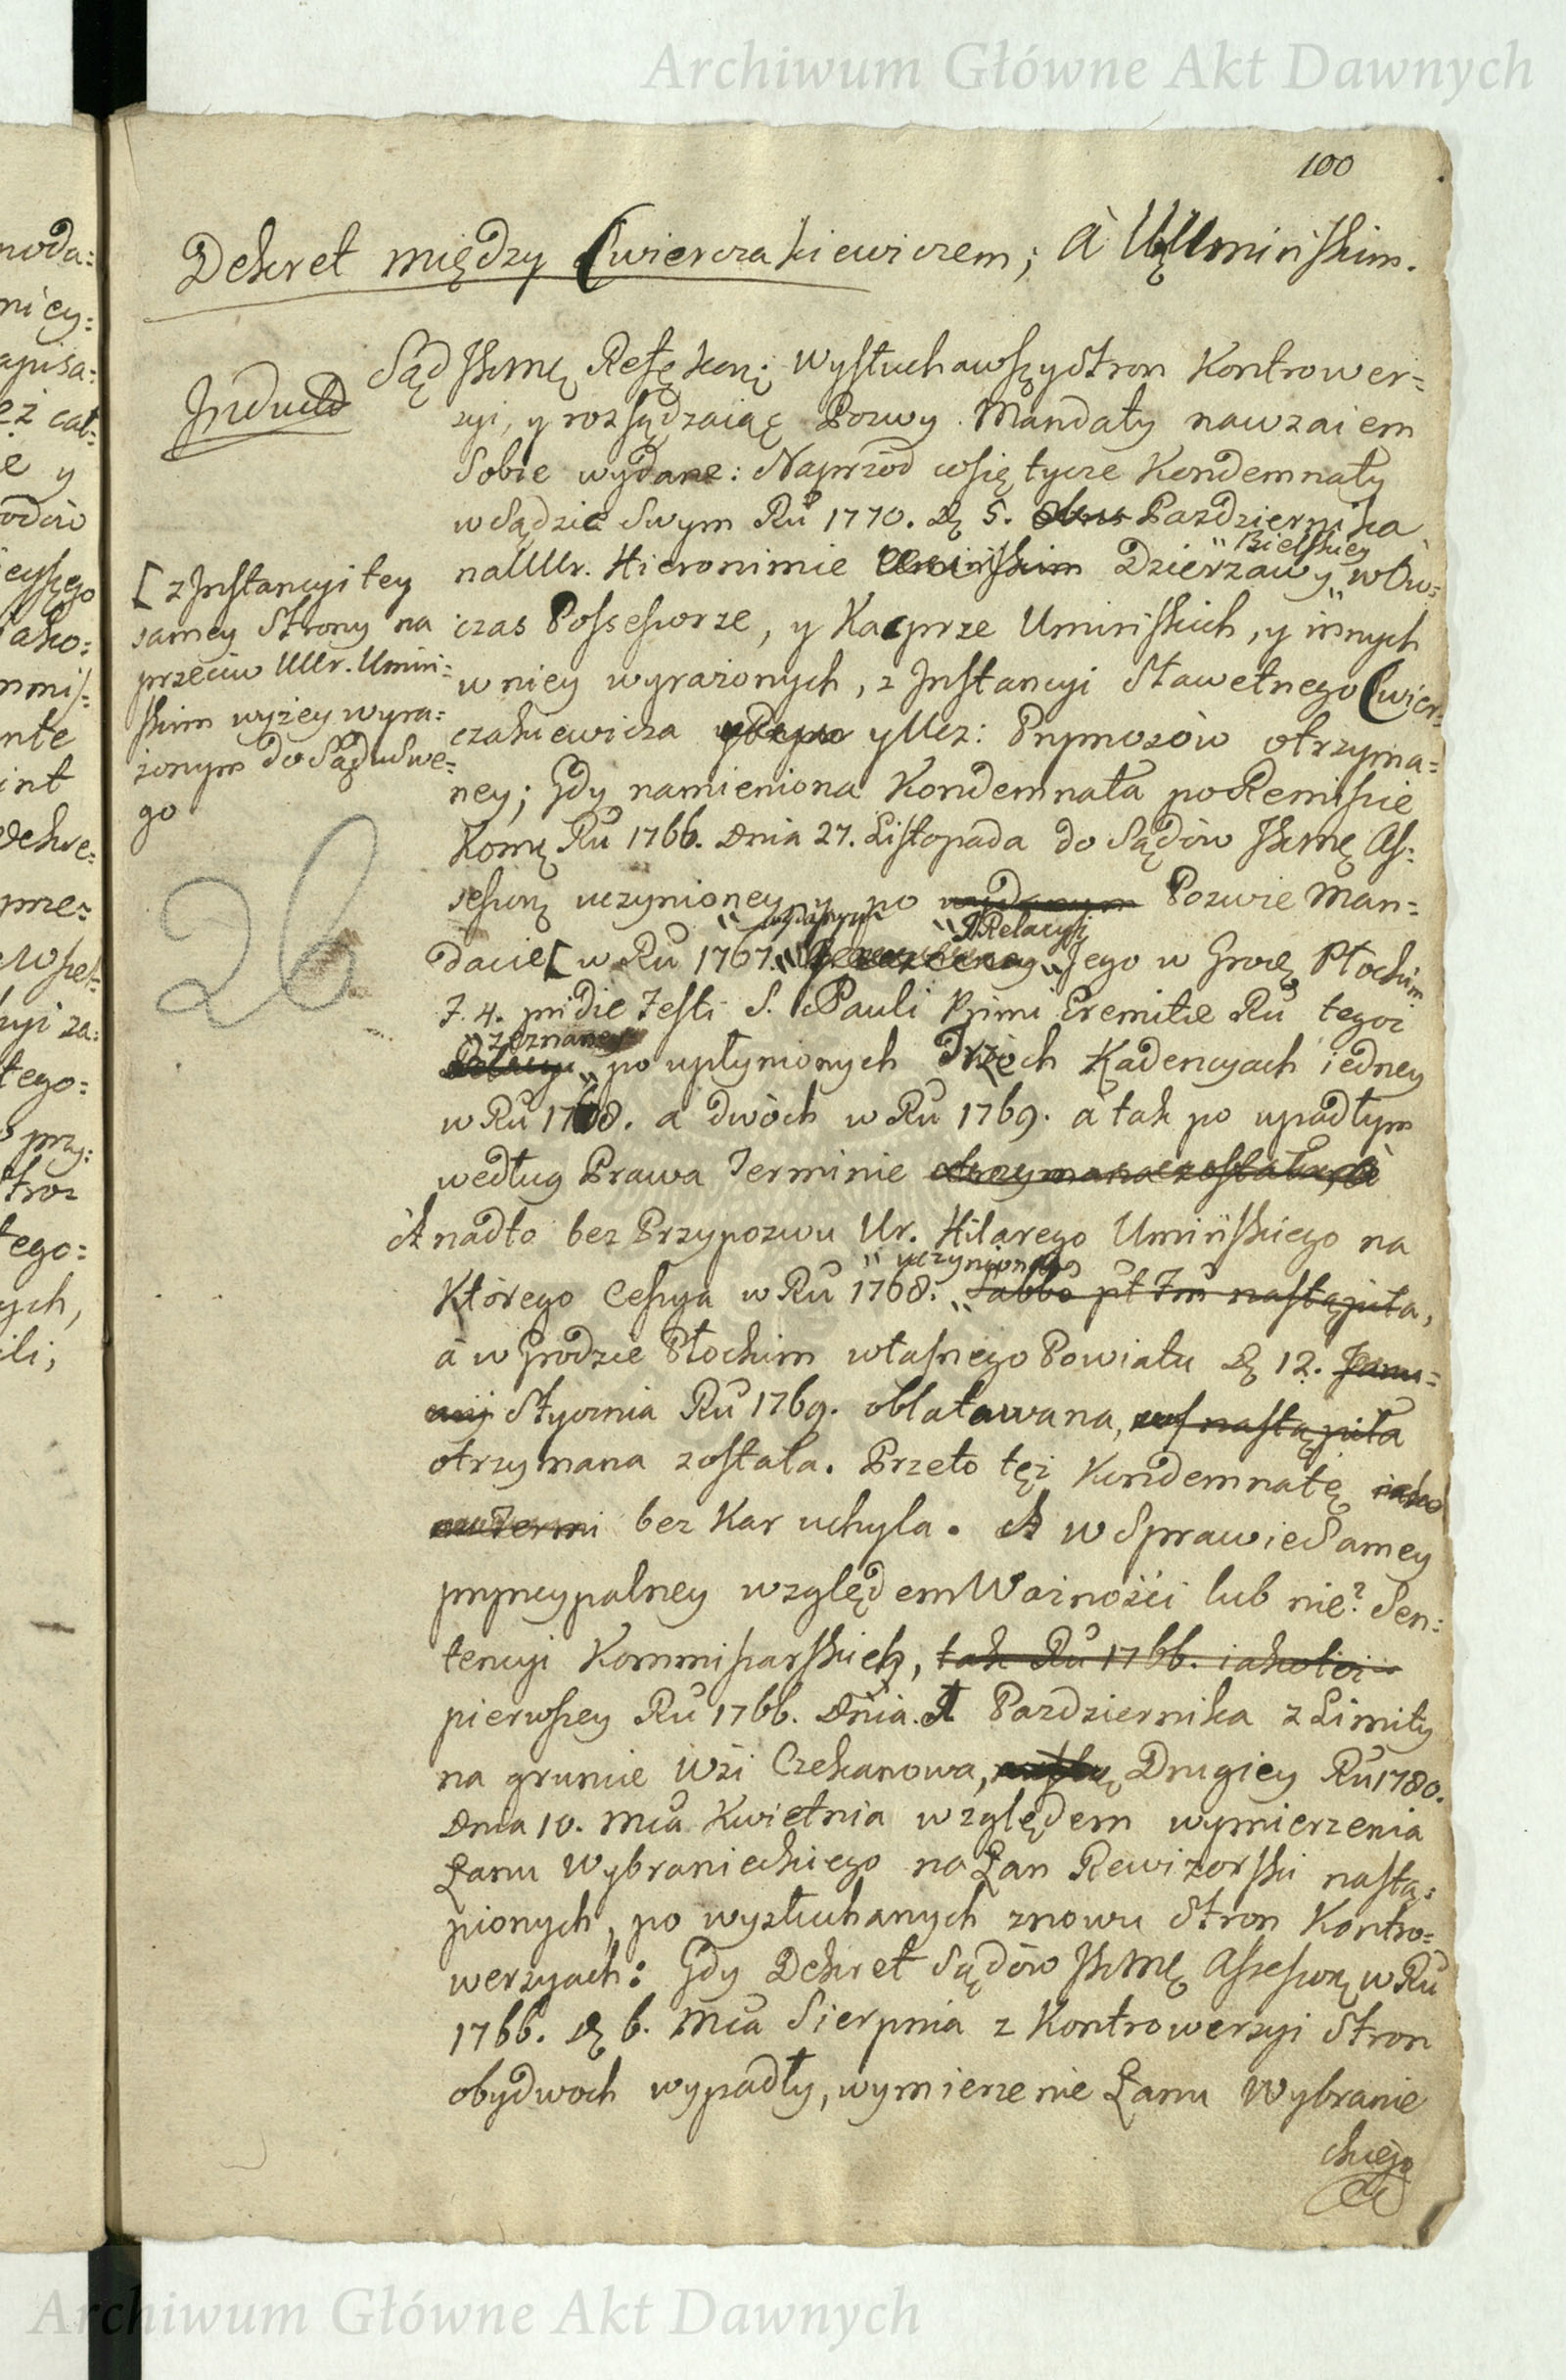 Archiwum Główne Akt Dawnych
100
Dekret między Cwierczakiewiczem; à Umińskim.
Inducta
Sąd JKMę wysłuchawszy Stron Kontrower=
zyi, y rozsądzaiąc Pozwy Mandaty nawzaiem
Sobie wydane: Naprzód wsię tycze Kondemnaty
w Sądzie Swym Ru 1770. D 5. Pazdziernika
na UUr. Hieronimie Umińskim Dzierzawy „Bielskiey„ wów=
czas Possessorze, y Kacprze Umińskich, y innych
w niey wyrażonych, z Instancyi Sławetnego Cwier=
czakiewicza y Ucz: Prymosów otrzyma=
ney; Gdy namieniona Kondemnata po Remissie
Komę Ru 1766. Dnia 27. Listopada do Sądów JKMę As=
sesorę uczynioney y po wydanym Pozwie Man=
dacie [ w Ru 1767. „wydanym„ „Relacyi„ Jego w Grodę Płockim
F. 4. pridie Festi S. Pauli Primi Eremitæ Ru tegoż
„zeznaney„ po upłynionych Trzech Kadencyach iedney
w Ru 1768. a dwóch w Ru 1769. à tak po upadłym
według Prawa Terminie otrzymana została,
A nadto bez Przypozwu Ur. Hilarego Umińskiego na
Którego Cessya w Ru 1768. „uczyniona„ nastąpiła,
à w Grodzie Płockim własnego Powiatu D 12. Janu=
arij Stycznia Ru 1769. oblatowana, nastąpiła
otrzymana została. Przeto tęż Kondemnatę iako
bez Kar uchyla. A w Sprawie Samey
pryncypalney względem Ważności lub nie? Sen=
tencyi Kommissarskich, tak Ru 1766. iakoteż
pierwszey Ru 1766. Dnia Pazdziernika z Limity
na gruncie Wsi Czekanowa, Drugiey Ru 1780.
Dnia 10. Mca Kwietnia względem wymierzenia
Łanu Wybranieckiego na Łan Rewizorski nastą=
pionych, po wysłuchanych znowu Stron Kontro=
wersyach: Gdy Dekret Sądów JKMę Assessorę w Ru
1766. D 6. Mca Sierpnia z Kontrowerzyi Stron
obydwoch wypadły, wymierzenie Łanu Wybranie
ckiego
[ z Instancyi tey
samey Strony na
przeciw UUr. Umiń=
skim wyżey wyra=
żonym do Sądu Swe=
go
26
Archiwum Główne Akt Dawnych